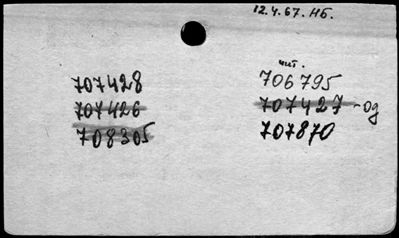 12.4.67. НБ.
707428
707426
708305
чит.
706795
707427 - од
707870